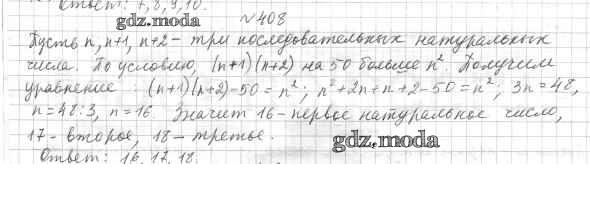 Ответ: 7,8,9,10.
№408
gdz.moda
Пусть n, n+1, n+2 - три последовательных натуральных
числа. По условию, (n+1)(n+2) на 50 больше n². Получим
уравнение: (n+1)(n+2)-50=n²; n²+2n+n+2-50=n²; 3n=48,
n=48:3, n=16. Значит 16-первое натуральное число,
17-второе, 18-третье.
gdz.moda
Ответ: 16,17,18.